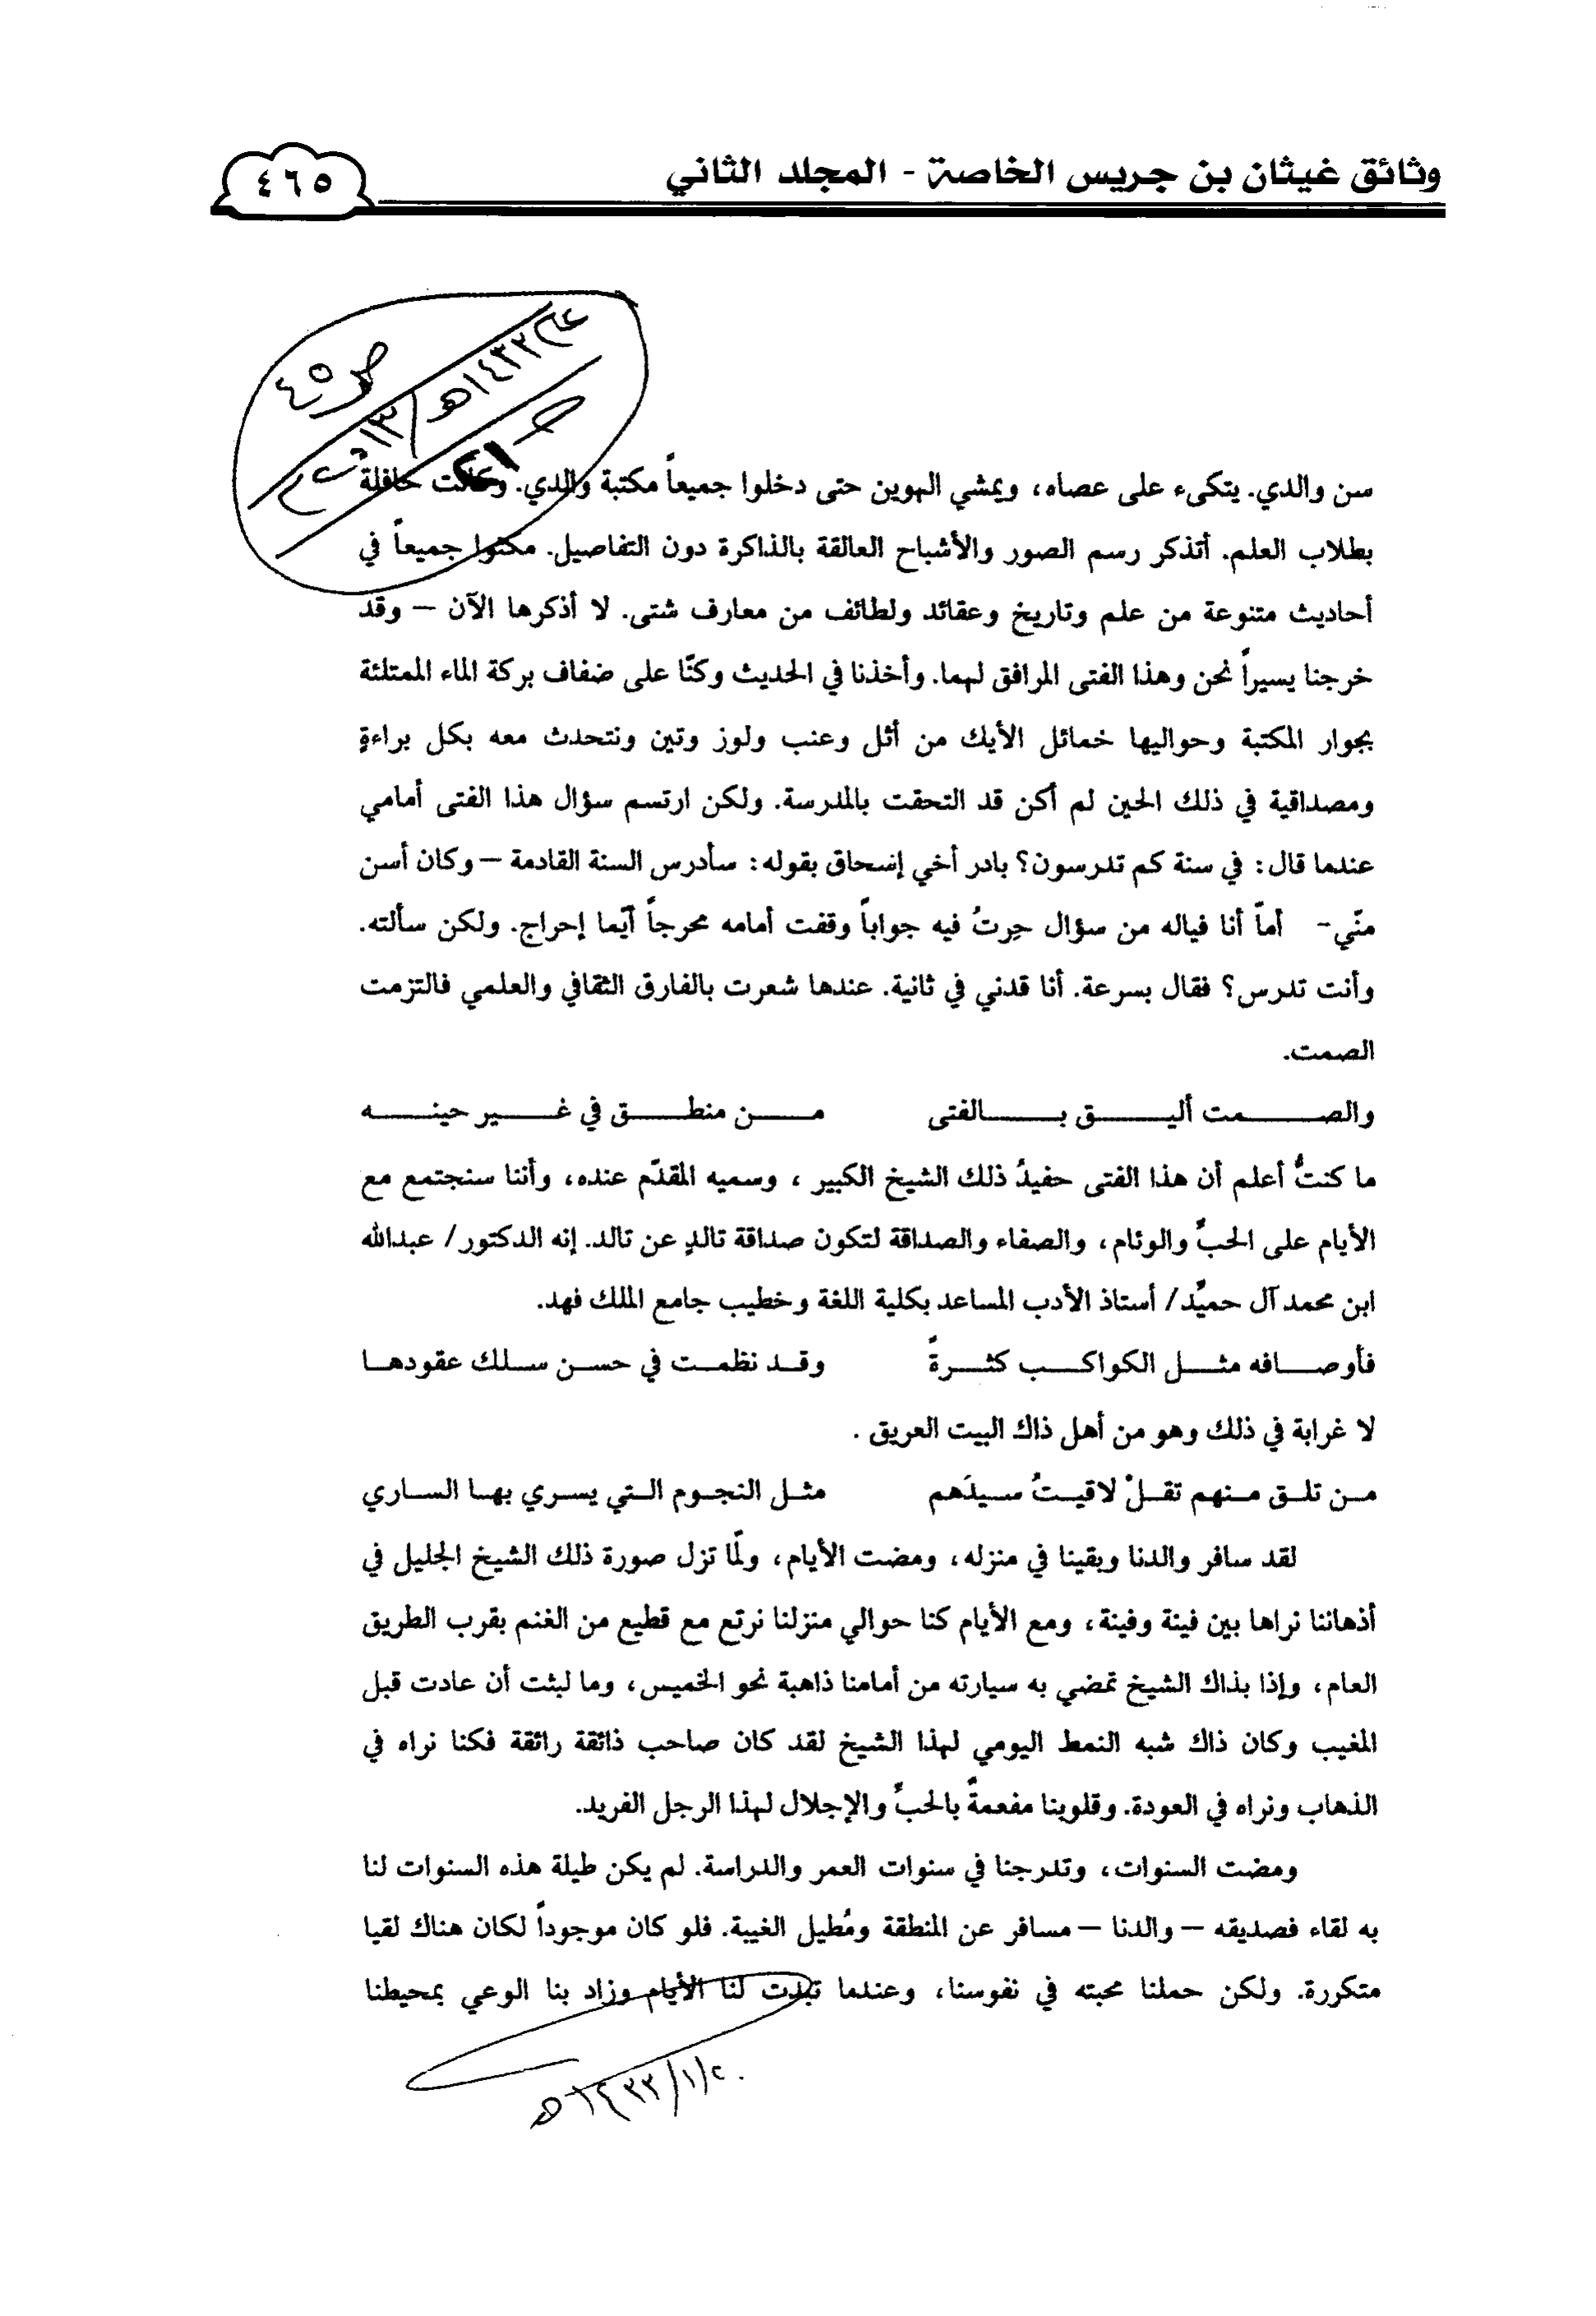 وثائق غيثان بن جريس الخاصة - المجلد الثاني
٤٦٥
ص ٤٥
سن والدي. يتكىء على عصاه، ويمشي الهوين حتى دخلوا جميعاً مكتبة والدي. وكانت حافلة
بطلاب العلم. أتذكر رسم الصور والأشباح العالقة بالذاكرة دون التفاصيل. مكثوا جميعاً في
أحاديث متنوعة من علم وتاريخ وعقائد ولطائف من معارف شتى. لا أذكرها الآن – وقد
خرجنا يسيراً نحن وهذا الفتى المرافق لهما. وأخذنا في الحديث وكنّا على ضفاف بركة الماء الممتلئة
بجوار المكتبة وحواليها خمائل الأيك من أثل وعنب ولوز وتين ونتحدث معه بكل براءةٍ
ومصداقية في ذلك الحين لم أكن قد التحقت بالمدرسة. ولكن ارتسم سؤال هذا الفتى أمامي
عندما قال: في سنة كم تدرسون؟ بادر أخي إسحاق بقوله: سأدرس السنة القادمة – وكان أسن
منّي - أماّ أنا فياله من سؤال حِرتُ فيه جواباً وقفت أمامه محرجاً أيّما إحراج. ولكن سألته.
وأنت تدرس؟ فقال بسرعة. أنا قدني في ثانية. عندها شعرت بالفارق الثقافي والعلمي فالتزمت
الصمت.
والصــمت أليــق بــالفتى مــن منطــق في غــير حينــه
ما كنتُ أعلم أن هذا الفتى حفيدُ ذلك الشيخ الكبير ، وسميه المقدّم عنده، وأننا سنجتمع مع
الأيام على الحبِّ والوئام، والصفاء والصداقة لتكون صداقة تالدٍ عن تالد. إنه الدكتور/ عبدالله
ابن محمد آل حميِّد/ أستاذ الأدب المساعد بكلية اللغة وخطيب جامع الملك فهد.
فأوصــافه مثــل الكواكــب كثــرةً وقــد نظمــت في حســن ســلك عقودهــا
لا غرابة في ذلك وهو من أهل ذاك البيت العريق .
مــن تلــق مــنهم تقــلْ لاقيــتُ ســيدَهم مثــل النجــوم الــتي يســري بهــا الســاري
لقد سافر والدنا وبقينا في منزله، ومضت الأيام، ولمّا تزل صورة ذلك الشيخ الجليل في
أذهاننا نراها بين فينة وفينة، ومع الأيام كنا حوالي منزلنا نرتع مع قطيع من الغنم بقرب الطريق
العام، وإذا بذاك الشيخ تمضي به سيارته من أمامنا ذاهبة نحو الخميس، وما لبثت أن عادت قبل
المغيب وكان ذاك شبه النمط اليومي لهذا الشيخ لقد كان صاحب ذائقة رائقة فكنا نراه في
الذهاب ونراه في العودة. وقلوبنا مفعمةً بالحبِّ والإجلال لهذا الرجل الفريد.
ومضت السنوات، وتدرجنا في سنوات العمر والدراسة. لم يكن طيلة هذه السنوات لنا
به لقاء فصديقه – والدنا – مسافر عن المنطقة ومُطيل الغيبة. فلو كان موجوداً لكان هناك لقيا
متكررة. ولكن حملنا محبته في نفوسنا، وعندما تبدت لنا الأيام وزاد بنا الوعي بمحيطنا